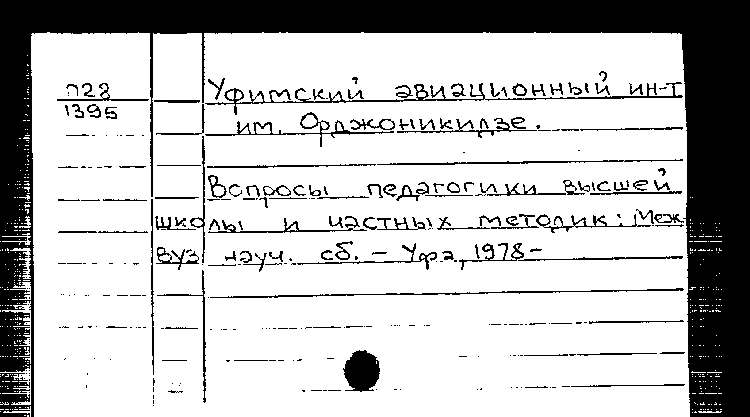 П28 Уфимский авиационный ин-т
1395 им. Орджоникидзе.
Вопросы педагогики высшей
школы и частных методик: Меж-
вуз науч. сб. – Уфа, 1978–